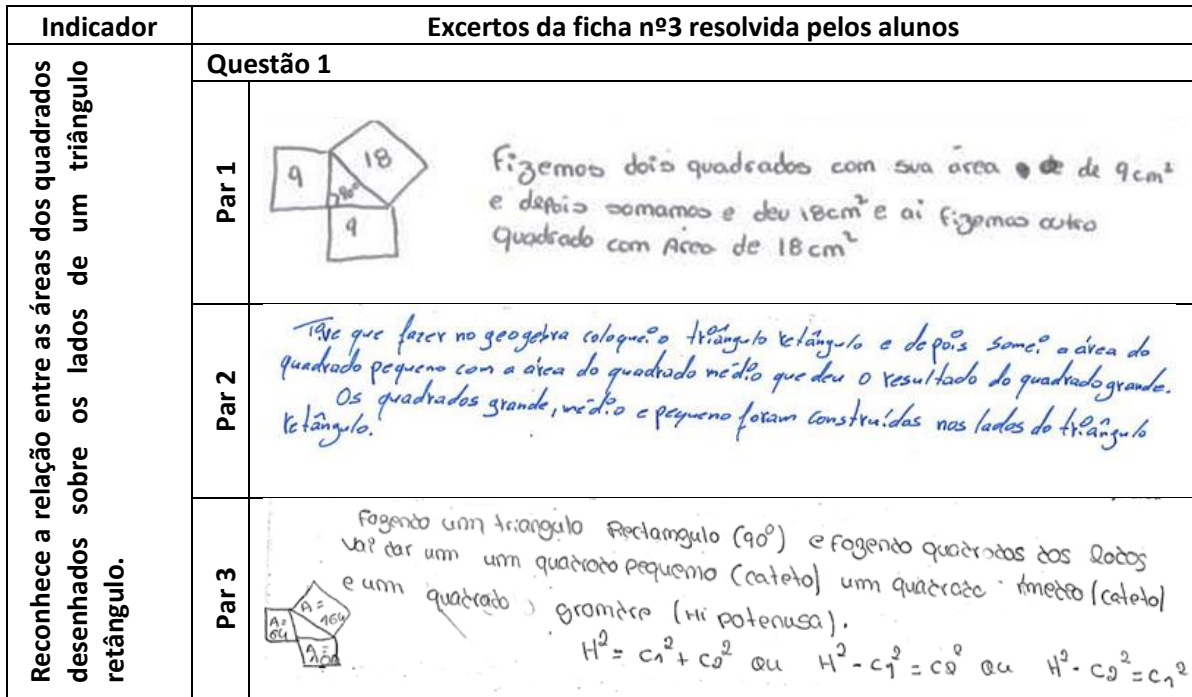 Indicador
Excertos da ficha nº3 resolvida pelos alunos
Reconhece a relação entre as áreas dos quadrados
desenhados sobre os lados de um triângulo
retângulo.
Questão 1
Par 1
9
18
90°
9
Fizemos dois quadrados com sua área de de 9cm²
e depois somamos e deu 18cm² e ai fizemos outro
quadrado com Área de 18cm²
Par 2
Tive que fazer no geogebra coloquei o triângulo retângulo e depois somei a área do
quadrado pequeno com a área do quadrado médio que deu o resultado do quadrado grande.
Os quadrados grande, médio e pequeno foram construídas nos lados do triângulo
retângulo.
Par 3
Fazendo umn triangulo Rectamgulo (90º) e fazendo quadrados dos lados
vai dar umm umm quadrado pequemo (cateto) um quadrado medio (cateto)
e umm quadrado gromdre (Hipotenusa).
A=
64
A=
164
A=
100
H² = c1² + c2² ou H² - c1² = c2² ou H² - c2² = c1²